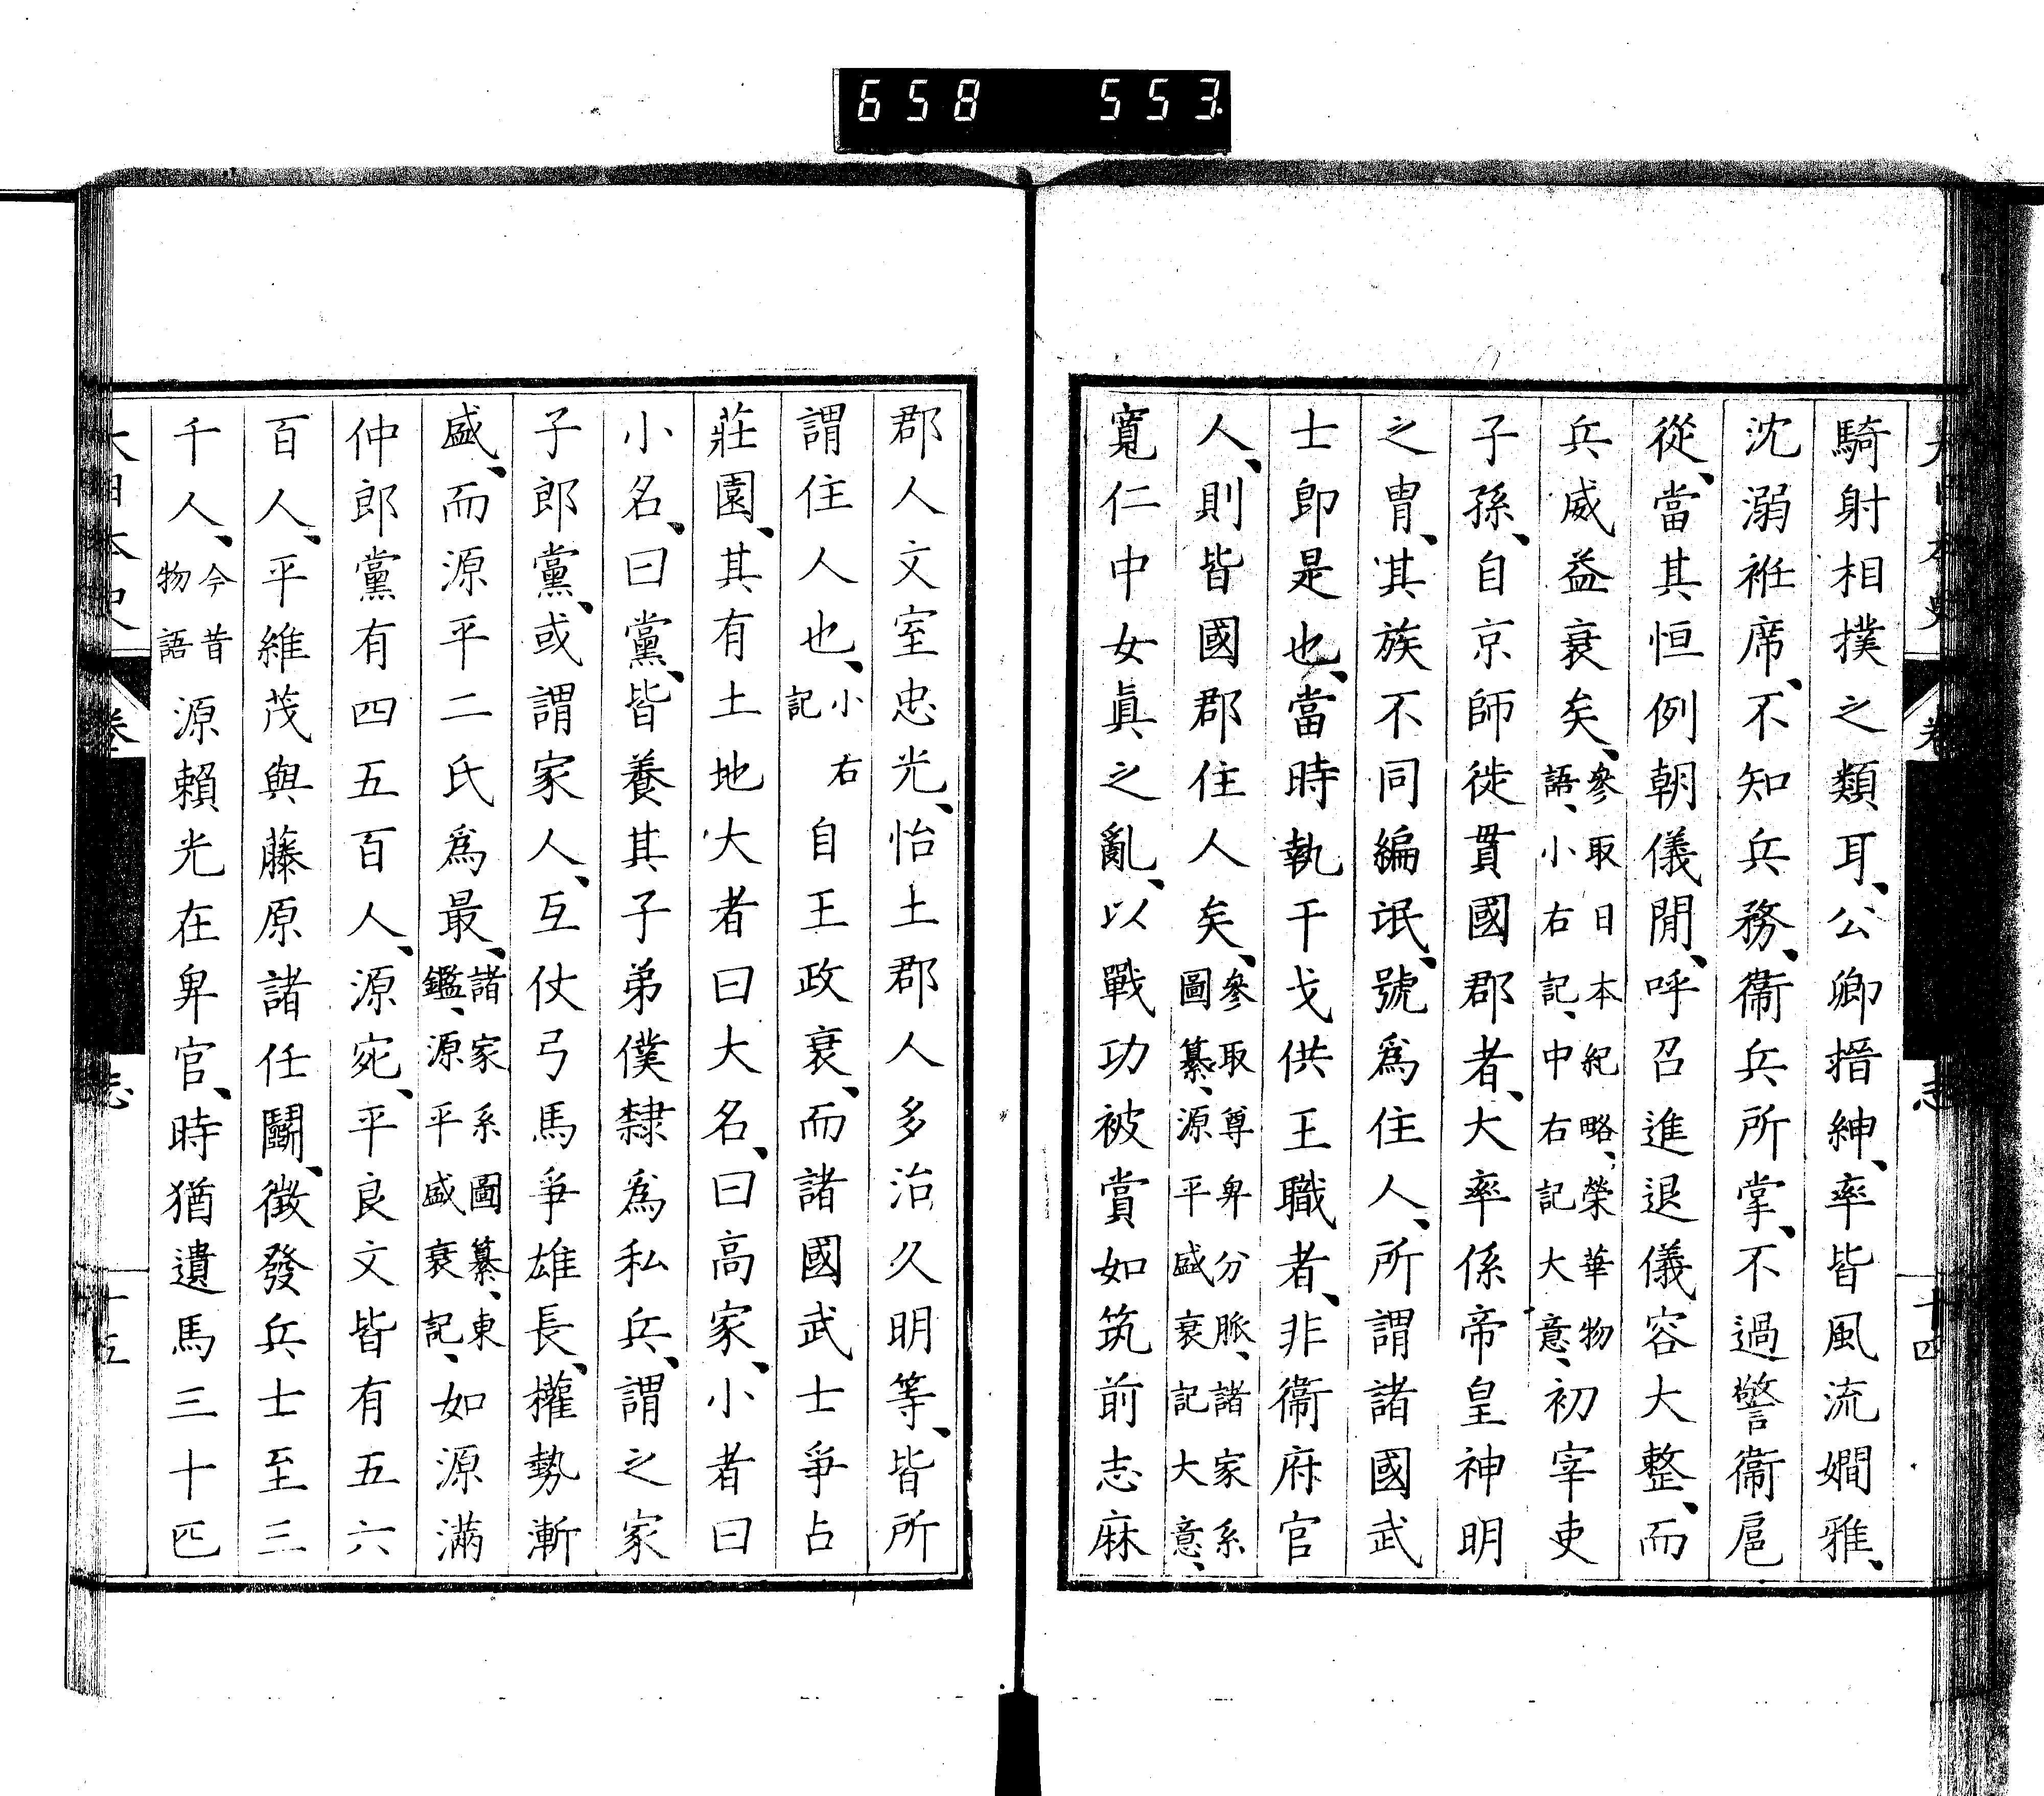 658 553
騎射相撲之類耳、公卿搢紳、率皆風流嫺雅、
沈溺袵席、不知兵務、衞兵所掌、不過警衞扈
從、當其恒例朝儀閒、呼召進退儀容大整、而
兵威益衰矣、參取日本紀略、榮華物語、小右記、中右記大意、初宰吏
子孫、自京師徙貫國郡者、大率係帝皇神明
之胄、其族不同編氓、號爲住人、所謂諸國武
士卽是也、當時執干戈供王職者、非衞府官
人、則皆國郡住人矣、參取尊卑分脈、諸家系圖纂、源平盛衰記大意、
寬仁中女眞之亂、以戰功被賞如筑前志麻
郡人文室忠光、怡土郡人多治久明等、皆所
謂住人也、小右記自王政衰、而諸國武士爭占
莊園、其有土地大者曰大名、曰高家、小者曰
小名、曰黨、皆養其子弟僕隸爲私兵、謂之家
子郎黨、或謂家人、互仗弓馬爭雄長、權勢漸
盛、而源平二氏爲最、諸家系圖纂、東鑑、源平盛衰記、如源滿
仲郎黨有四五百人、源宛、平良文皆有五六
百人、平維茂與藤原諸任鬬、徵發兵士至三
千人、今昔物語源賴光在卑官、時猶遺馬三十匹
大日本史 卷 志 十五